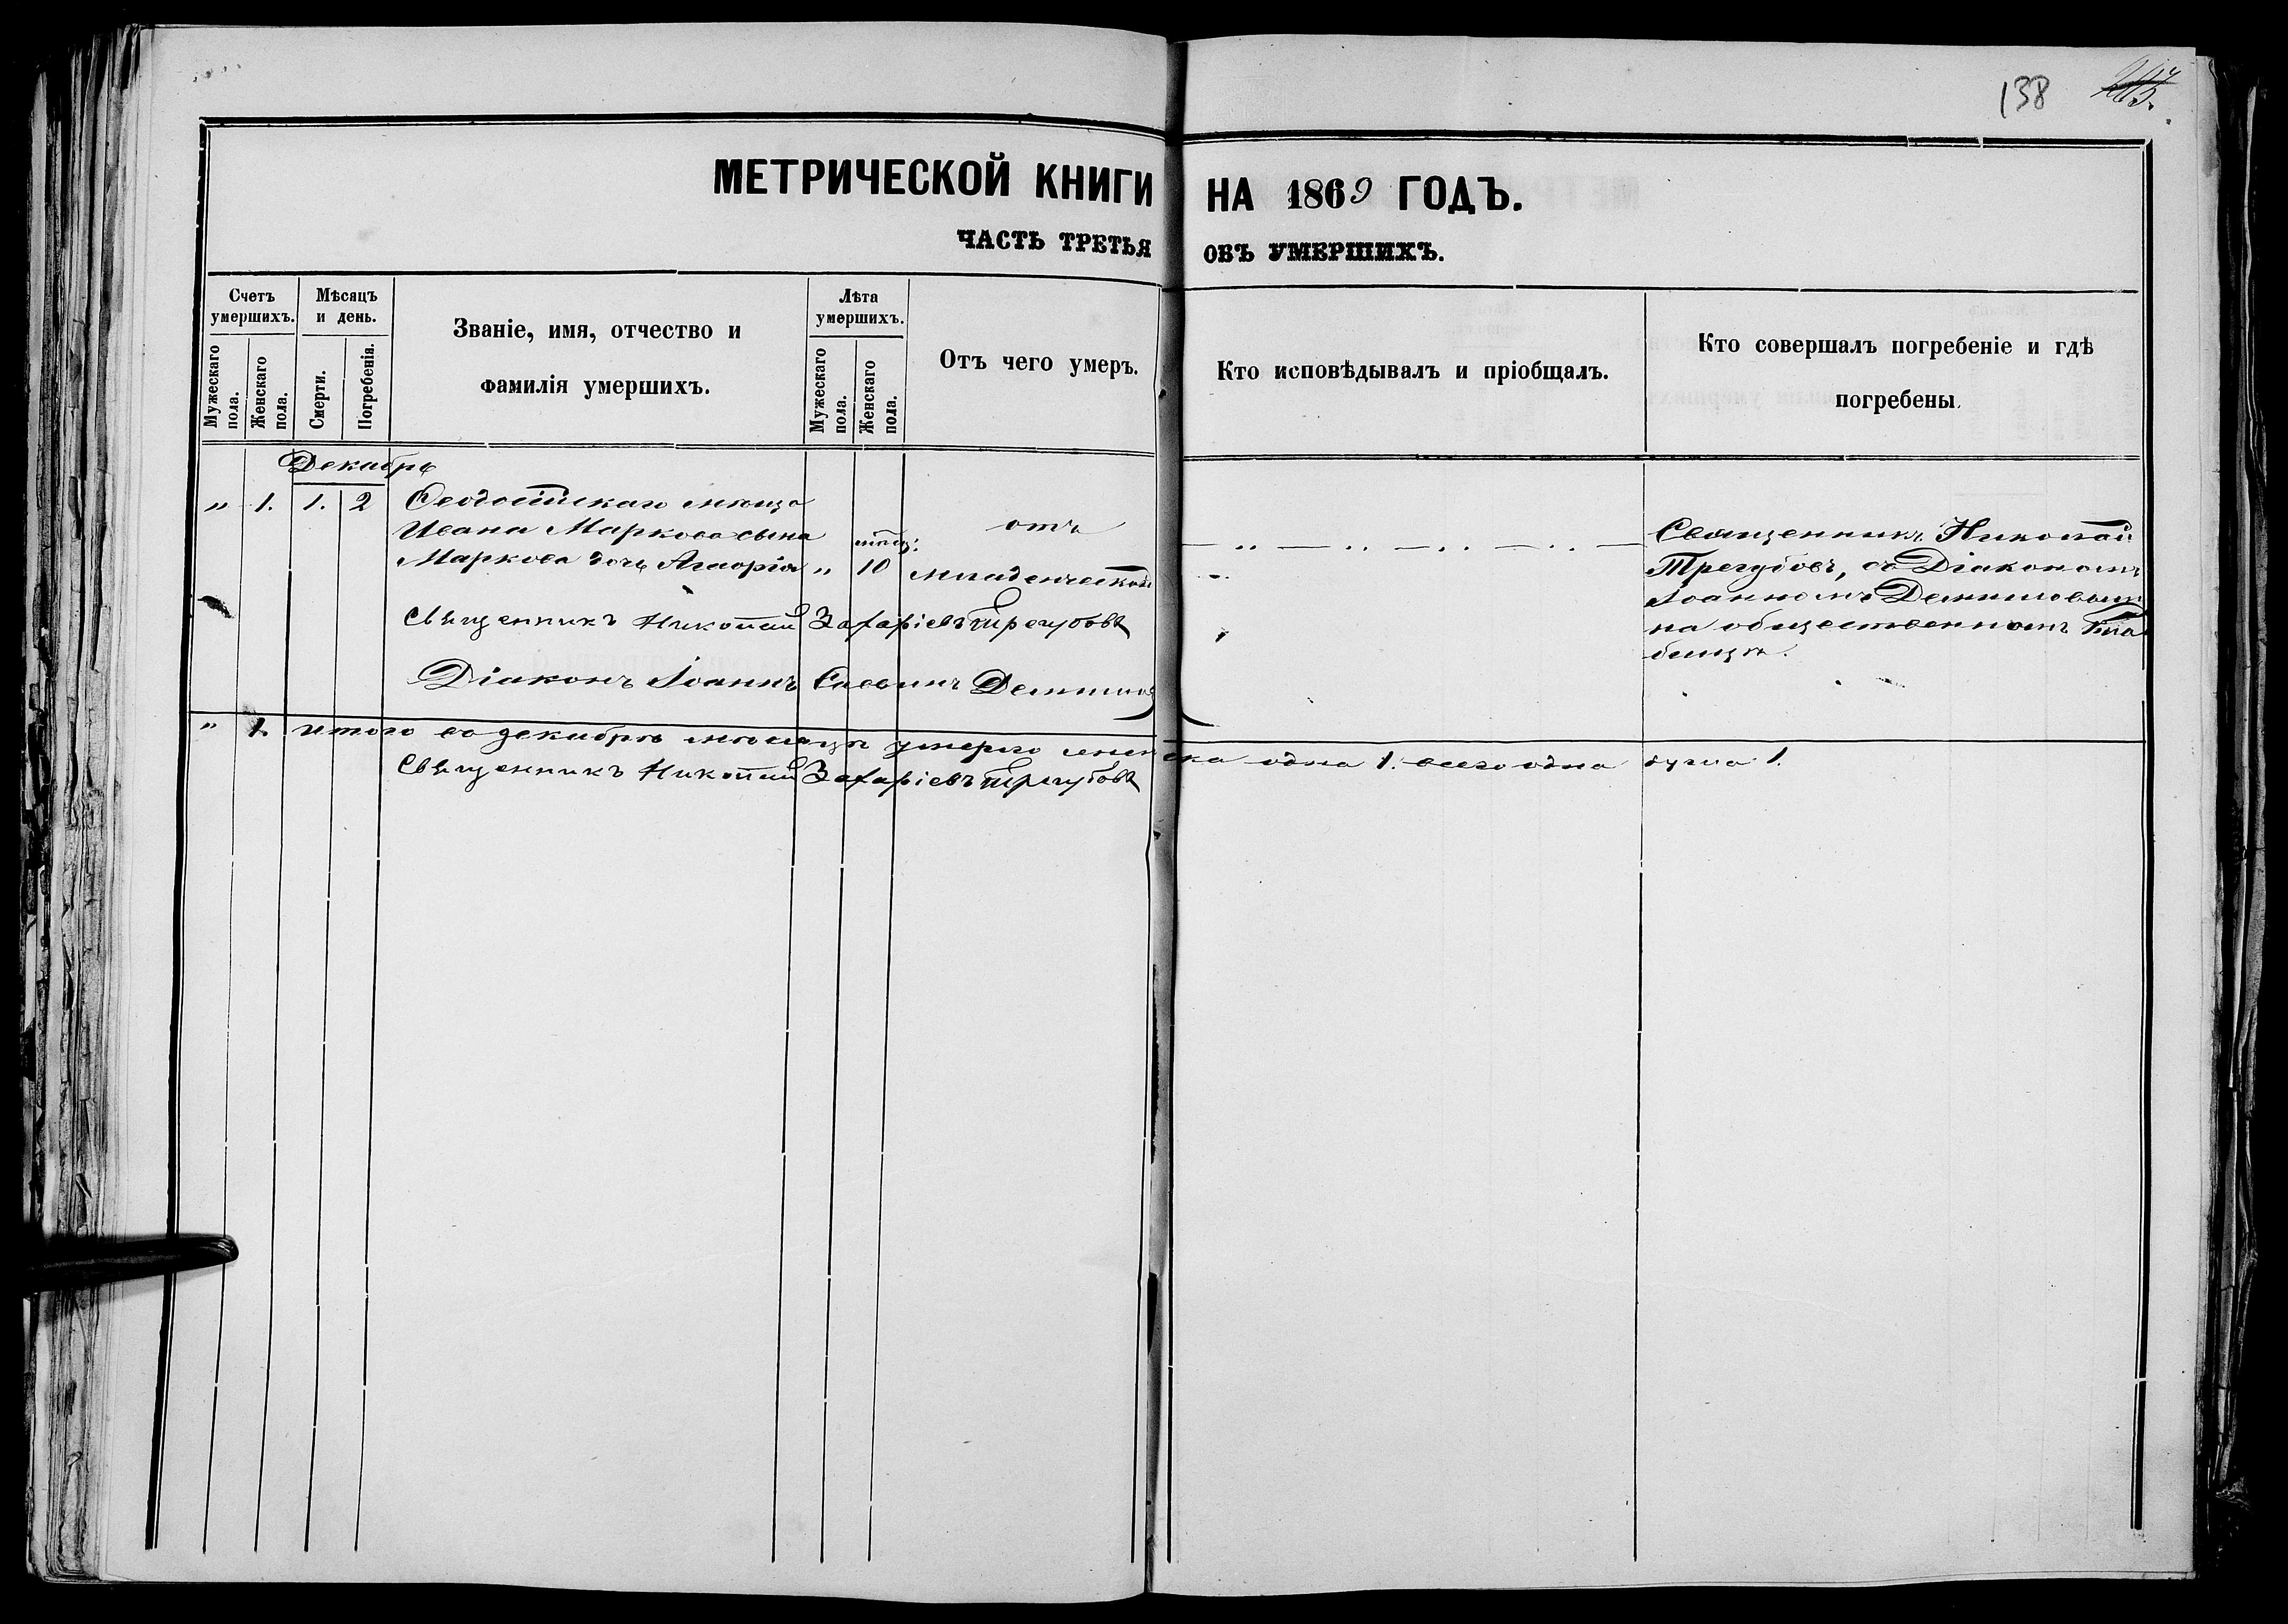 138
МЕТРИЧЕСКОЙ КНИГИ НА 1869 ГОДЪ.
ЧАСТЬ ТРЕТЬЯ ОБЪ УМЕРШИХЪ.
Счетъ умершихъ.
Мужескаго пола.
Женскаго пола.
Мѣсяцъ и день.
Смерти.
Погребенія.
Званіе, имя, отчество и
фамилія умершихъ.
Лѣта умершихъ.
Мужескаго пола.
Женскаго пола.
Отъ чего умеръ.
Кто исповѣдывалъ и пріобщалъ.
Кто совершалъ погребеніе и гдѣ
погребены.
Декабрь
„ 1. 1. 2 Ѳеодосійскаго
Ивана Маркова сына
Маркова дочь „ 10
отъ
младенческой
Священникъ Николай
Трегубовъ, съ Діакономъ
Іоанномъ
на общественномъ кла
бищѣ.
Священникъ Николай Захаріевъ Трегубовъ
Діаконъ Іоаннъ Саввинъ
„ 1. итого въ декабрѣ мѣсяцѣ умерло женска одна 1. всего одна душа 1.
Священникъ Николай Захаріевъ Трегубовъ